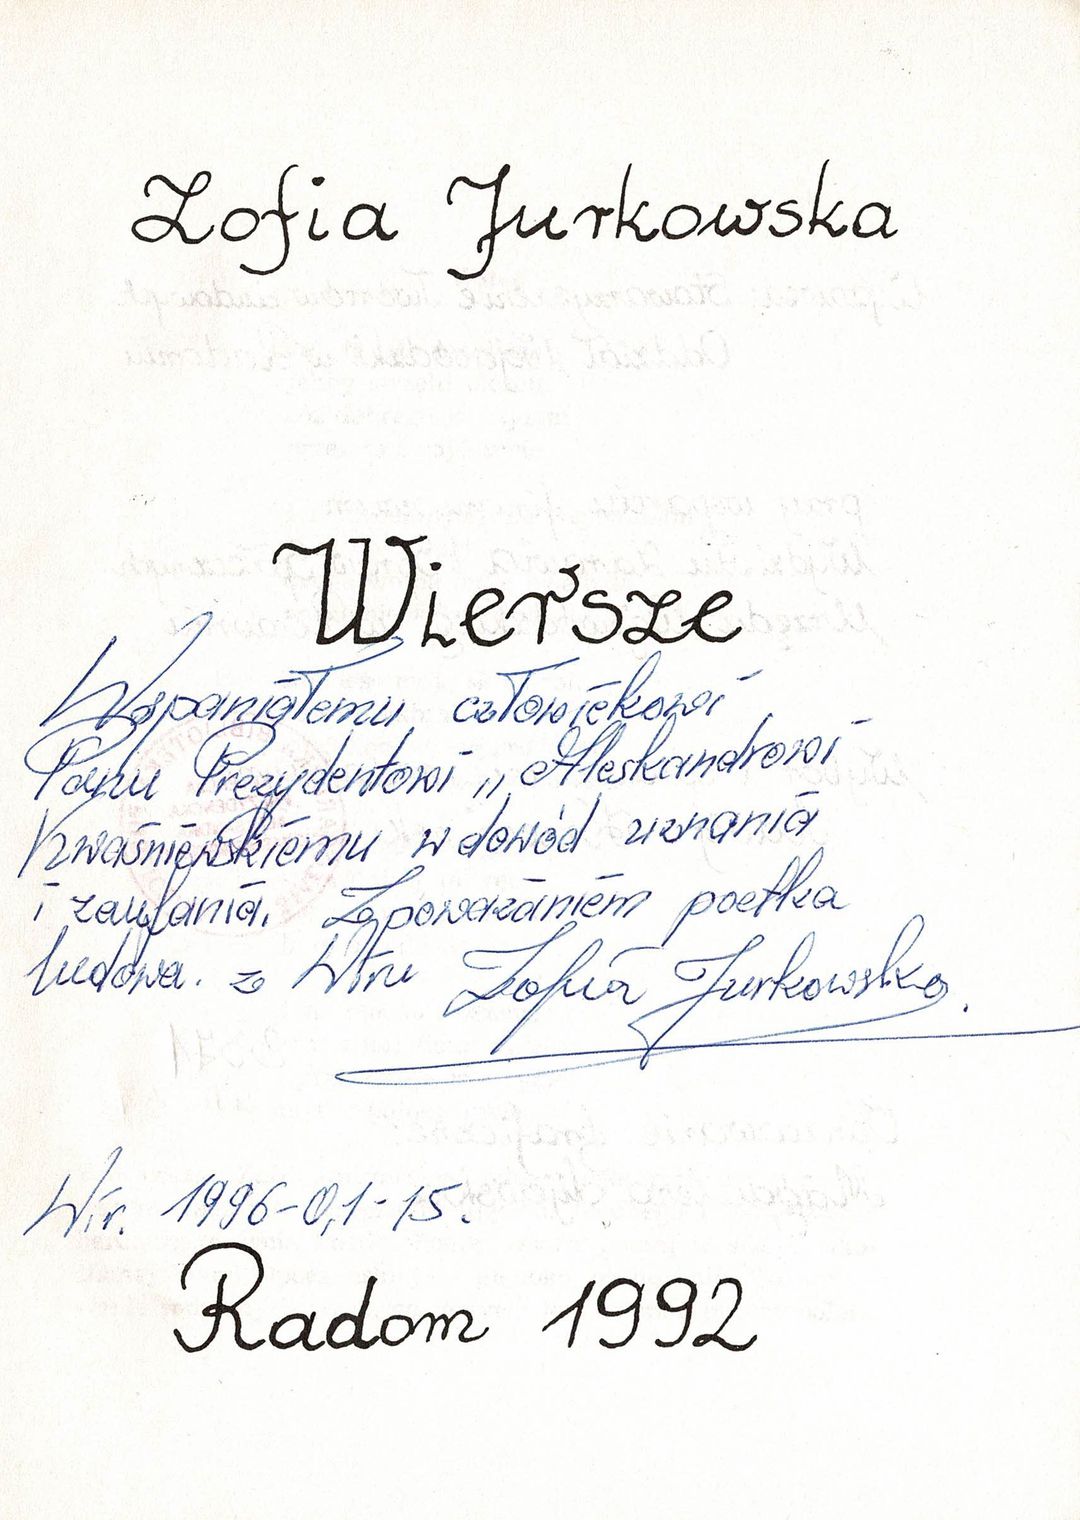 Zofia Jurkowska
Wiersze
Wspaniałemu człowiekowi
Panu Prezydentowi „Aleskandrowi
Kwaśniewskiemu w dowód uznania
i zaufania. Z poważaniem poetka
ludowa. z Wiru Zofia Jurkowska.
Wir. 1996-0,1-15.
Radom 1992